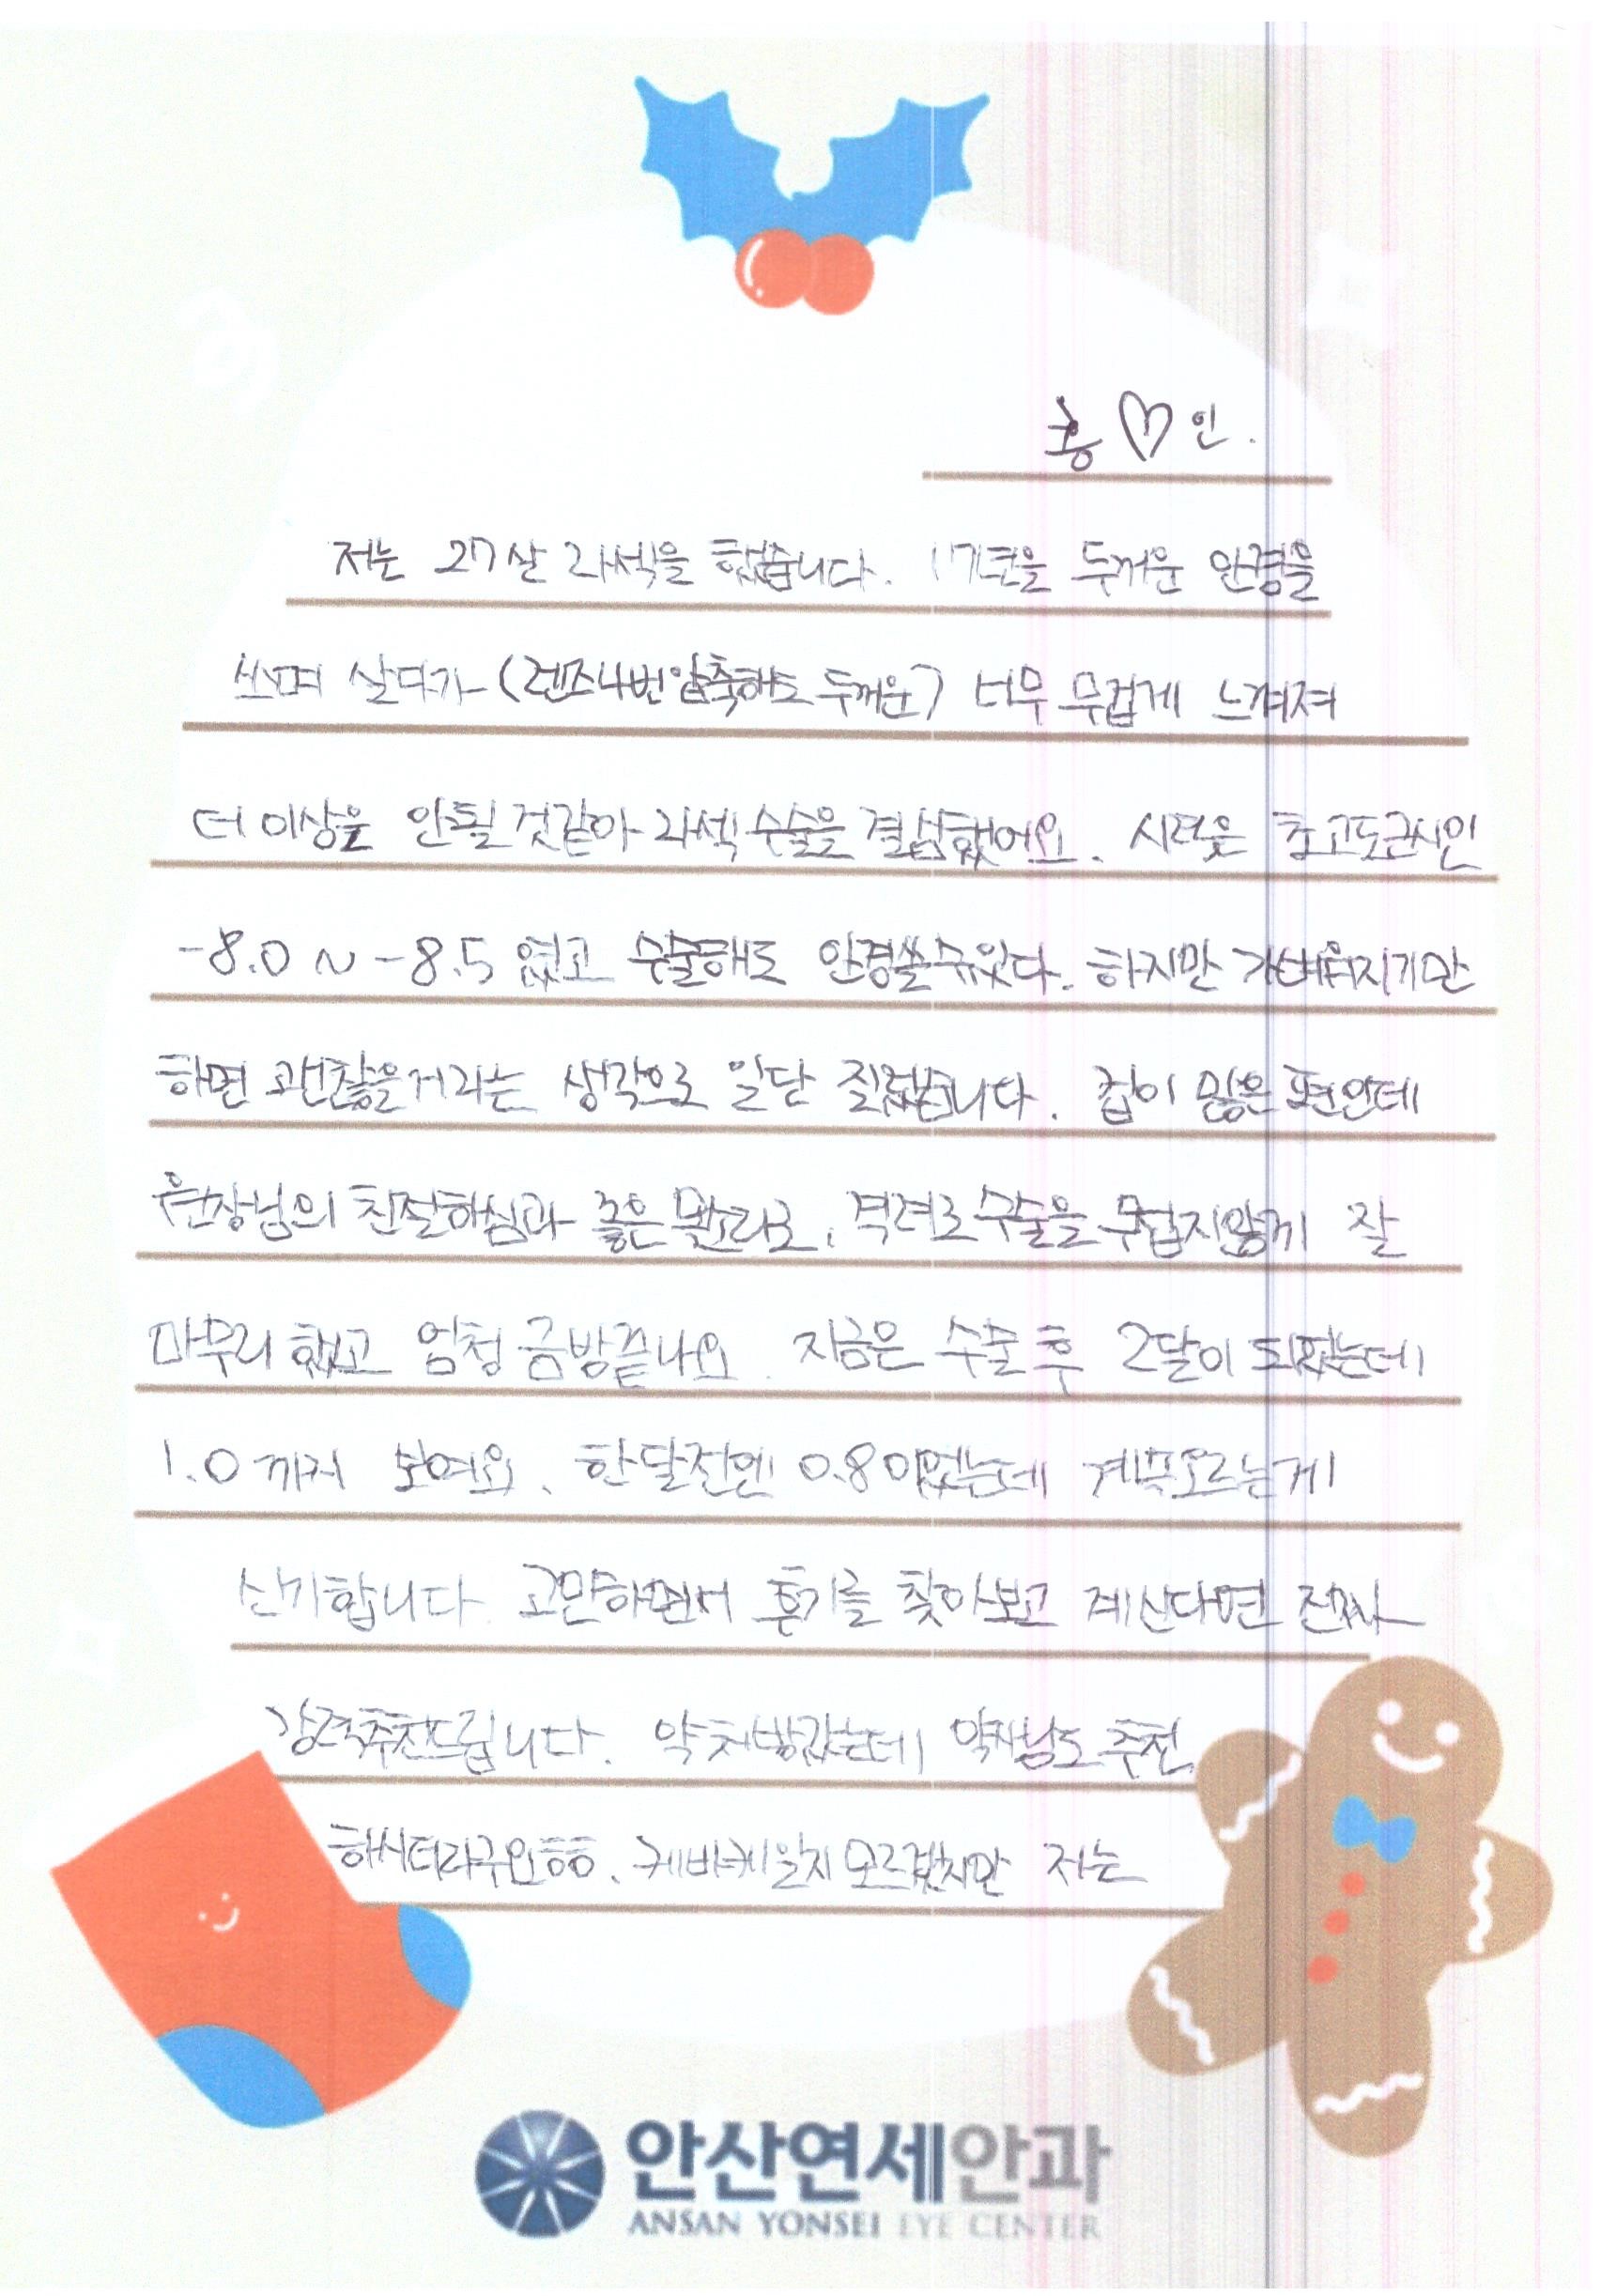 홍♡인.
저는 27살 라섹을 했습니다. 17년을 두꺼운 안경을
쓰며 살다가 (렌즈4번압축해도 두꺼운) 너무 무겁게 느껴져
더 이상은 안될 것같아 라섹 수술을 결심했어요. 시력은 초고도근시인
-8.0 ~ -8.5 였고 수술해도 안경쓸수있다. 하지만 가벼워지기만
하면 괜찮을거라는 생각으로 일단 질렀습니다. 겁이 많은 편인데
원장님의 친절하심과 좋은 격려로 수술을 무섭지않게 잘
마무리 했고 엄청 금방끝나요. 지금은 수술 후 2달이 되었는데
1.0까지 보여요. 한달전엔 0.8이었는데 계속오르는게
신기합니다. 고민하면서 후기를 찾아보고 계신다면 진짜
강력추천드립니다. 약 처방갔는데 약사님도 추천
하시더라구요ㅎㅎ. 케바케일지 모르겠지만 저는
안산연세안과
ANSAN YONSEI EYE CENTER